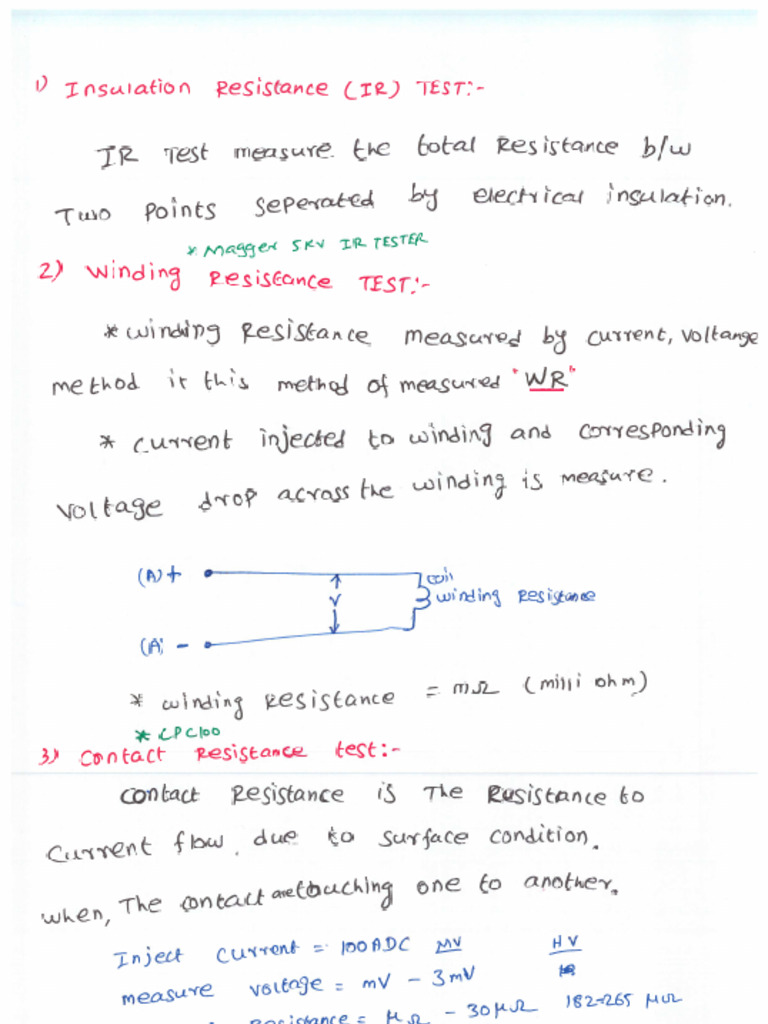 1) Insulation Resistance (IR) TEST:-
IR Test measure the total Resistance b/w
Two Points seperated by electrical insulation.
* Magger 5KV IR TESTER
2) Winding Resistance TEST:-
* winding Resistance measured by current, voltange
method it this method of measured "WR"
* current injected to winding and corresponding
voltage drop across the winding is measure.
(A) +
V
coil
winding Resistance
(A) -
* winding Resistance = mΩ (milli ohm)
* CPC100
3) Contact Resistance test:-
Contact Resistance is The Resistance to
Current flow, due to surface condition.
when, The contact are touching one to another.
Inject Current = 100ADC MV HV
measure voltage = mV - 3mV
Resistance = μΩ - 30μΩ 182-265 μΩ